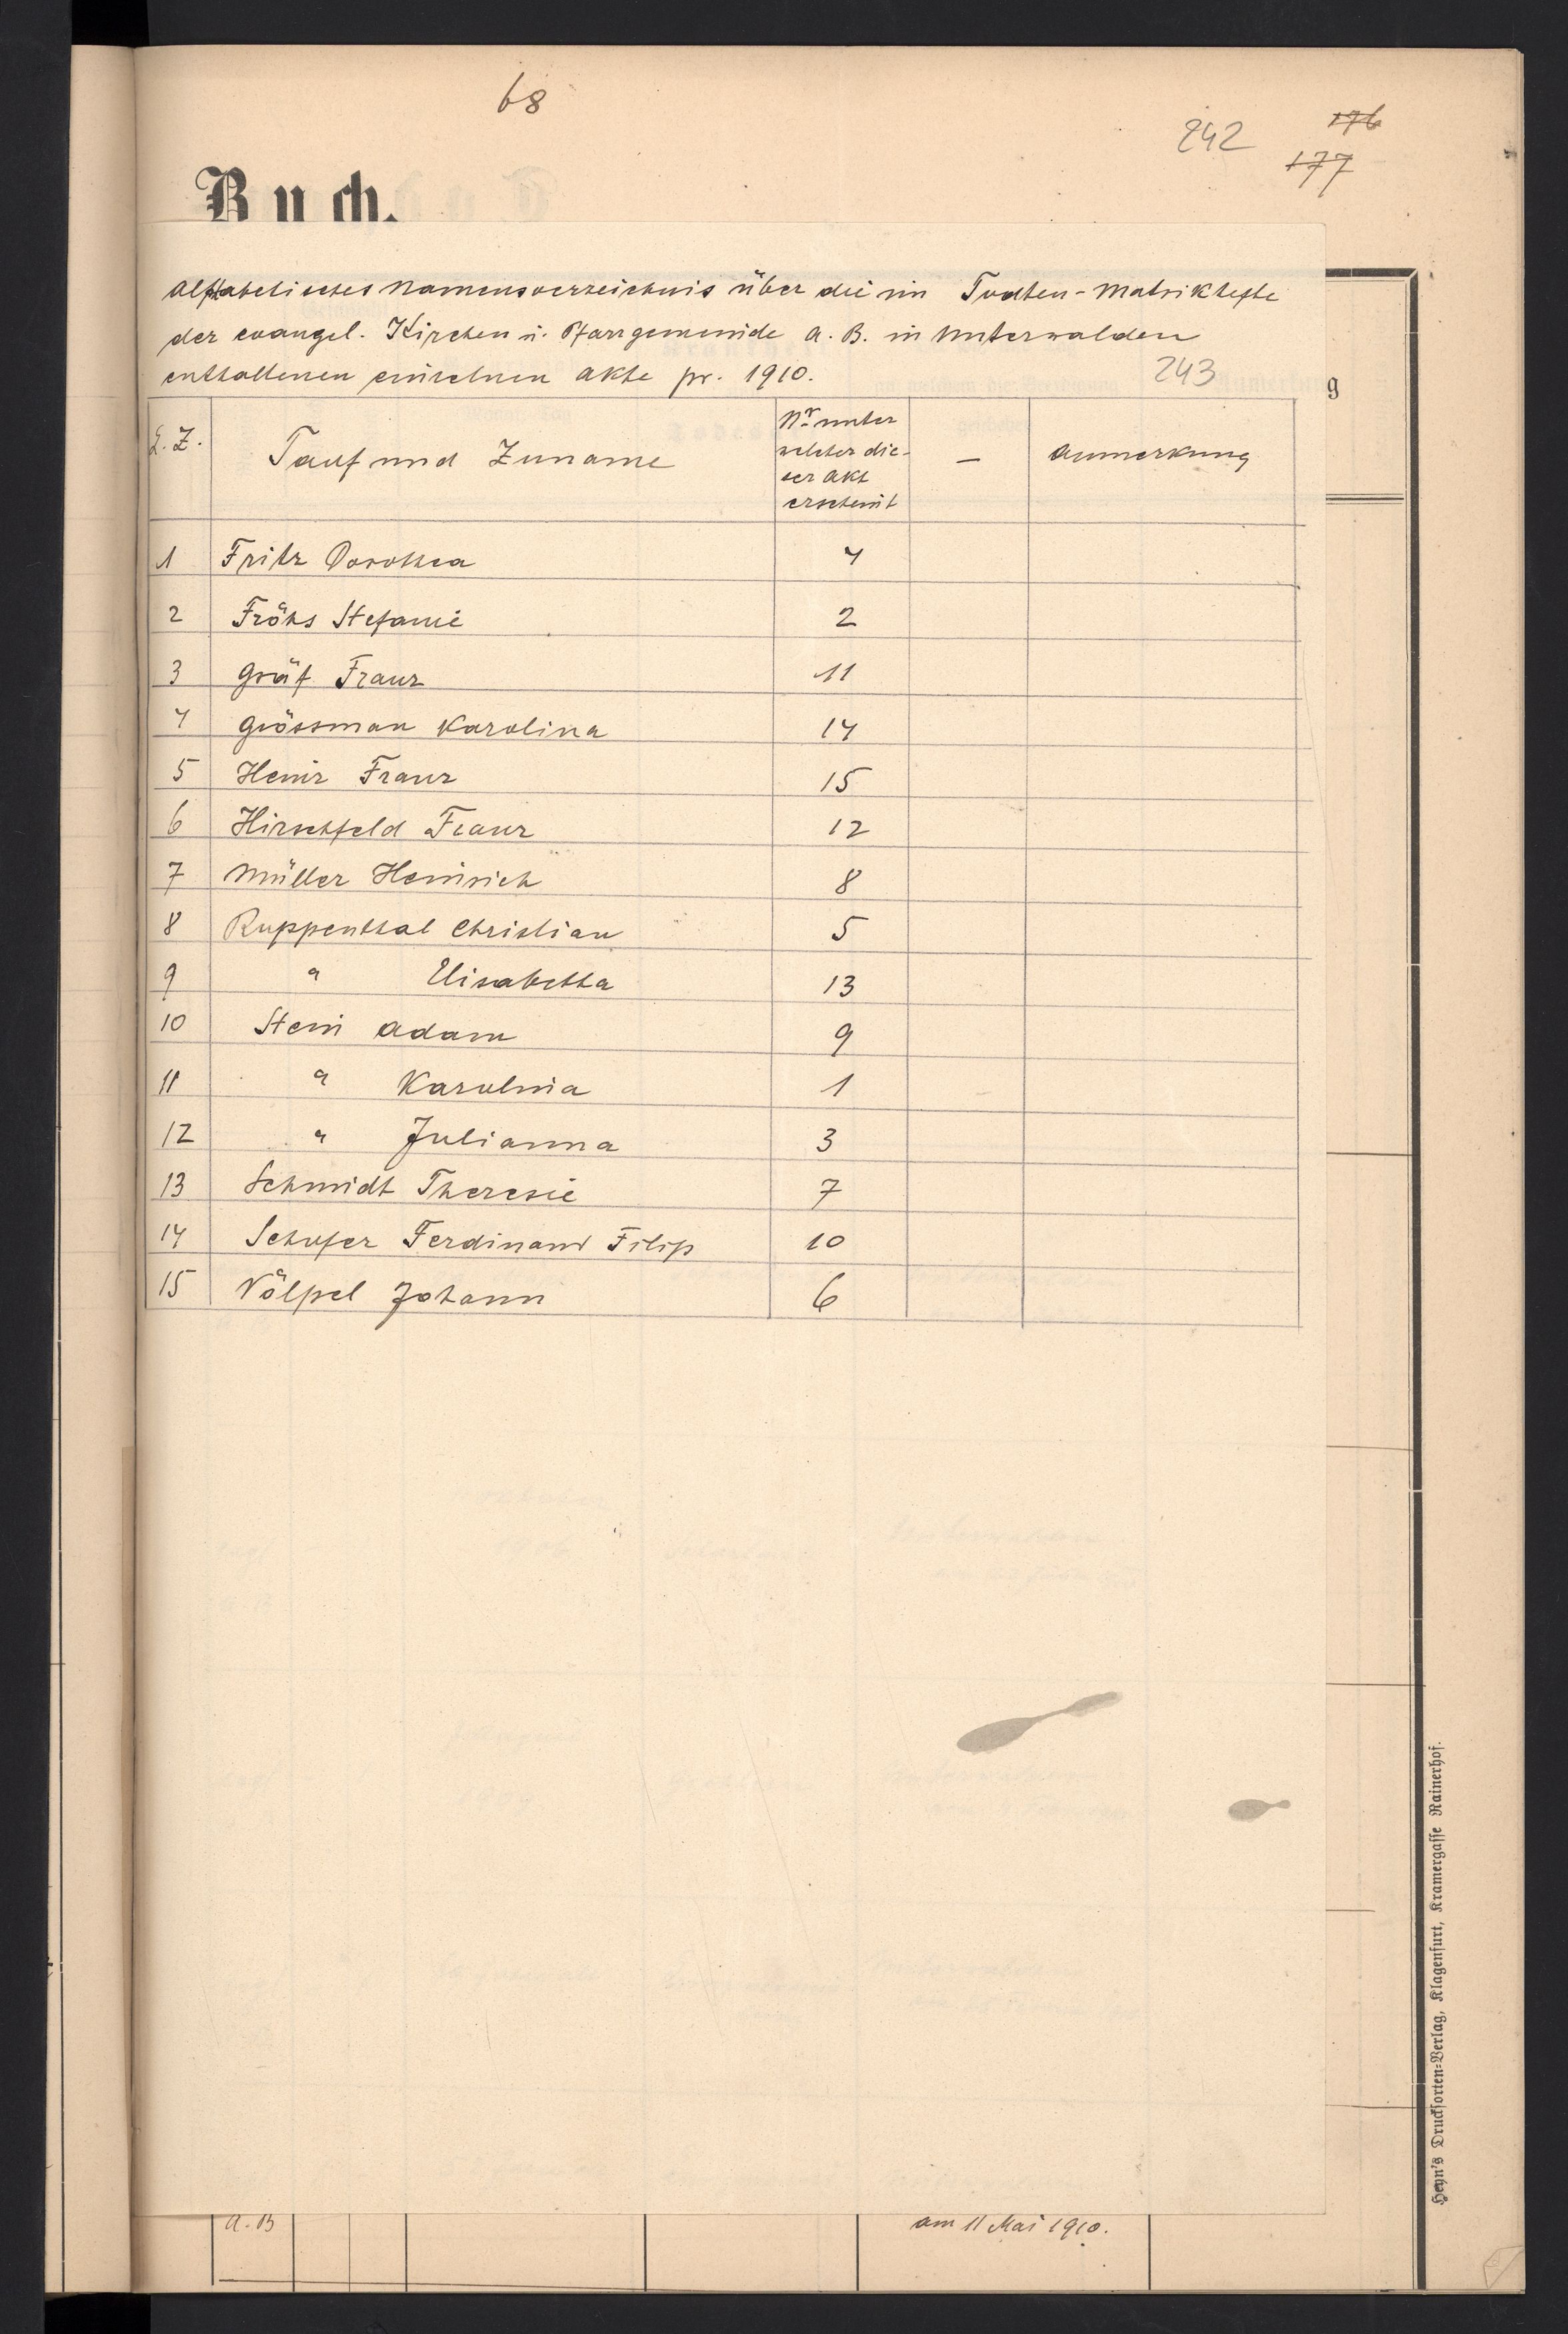 68
242
176
177
Buch.
Alfabetisches Namensverzeichnis über die im Todten-Matrikhefte
der evangel. Kirchen u. Pfarrgemeinde A. B. in Unterwalden
enthaltenen einzelnen Akte pr. 1910.
243
g
L. Z. Tauf und Zuname Nr. unter welcher die- ser Akt erscheint — Anmerkung
1 Fritz Dorothea 4
2 Fröhs Stefanie 2
3 Gräf Franz 11
4 Grössman Karolina 14
5 Heinz Franz 15
6 Hirschfeld Franz 12
7 Müller Heinrich 8
8 Ruppenthal Christian 5
9 " Elisabetha 13
10 Stein Adam 9
11 " Karolina 1
12 " Julianna 3
13 Schmidt Theresie 7
14 Schufer Ferdinand Filip 10
15 Völpel Johann 6
A. B
am 11 Mai 1910.
Heyn's Drucksorten-Verlag, Klagenfurt, Kramergasse Rainerhof.